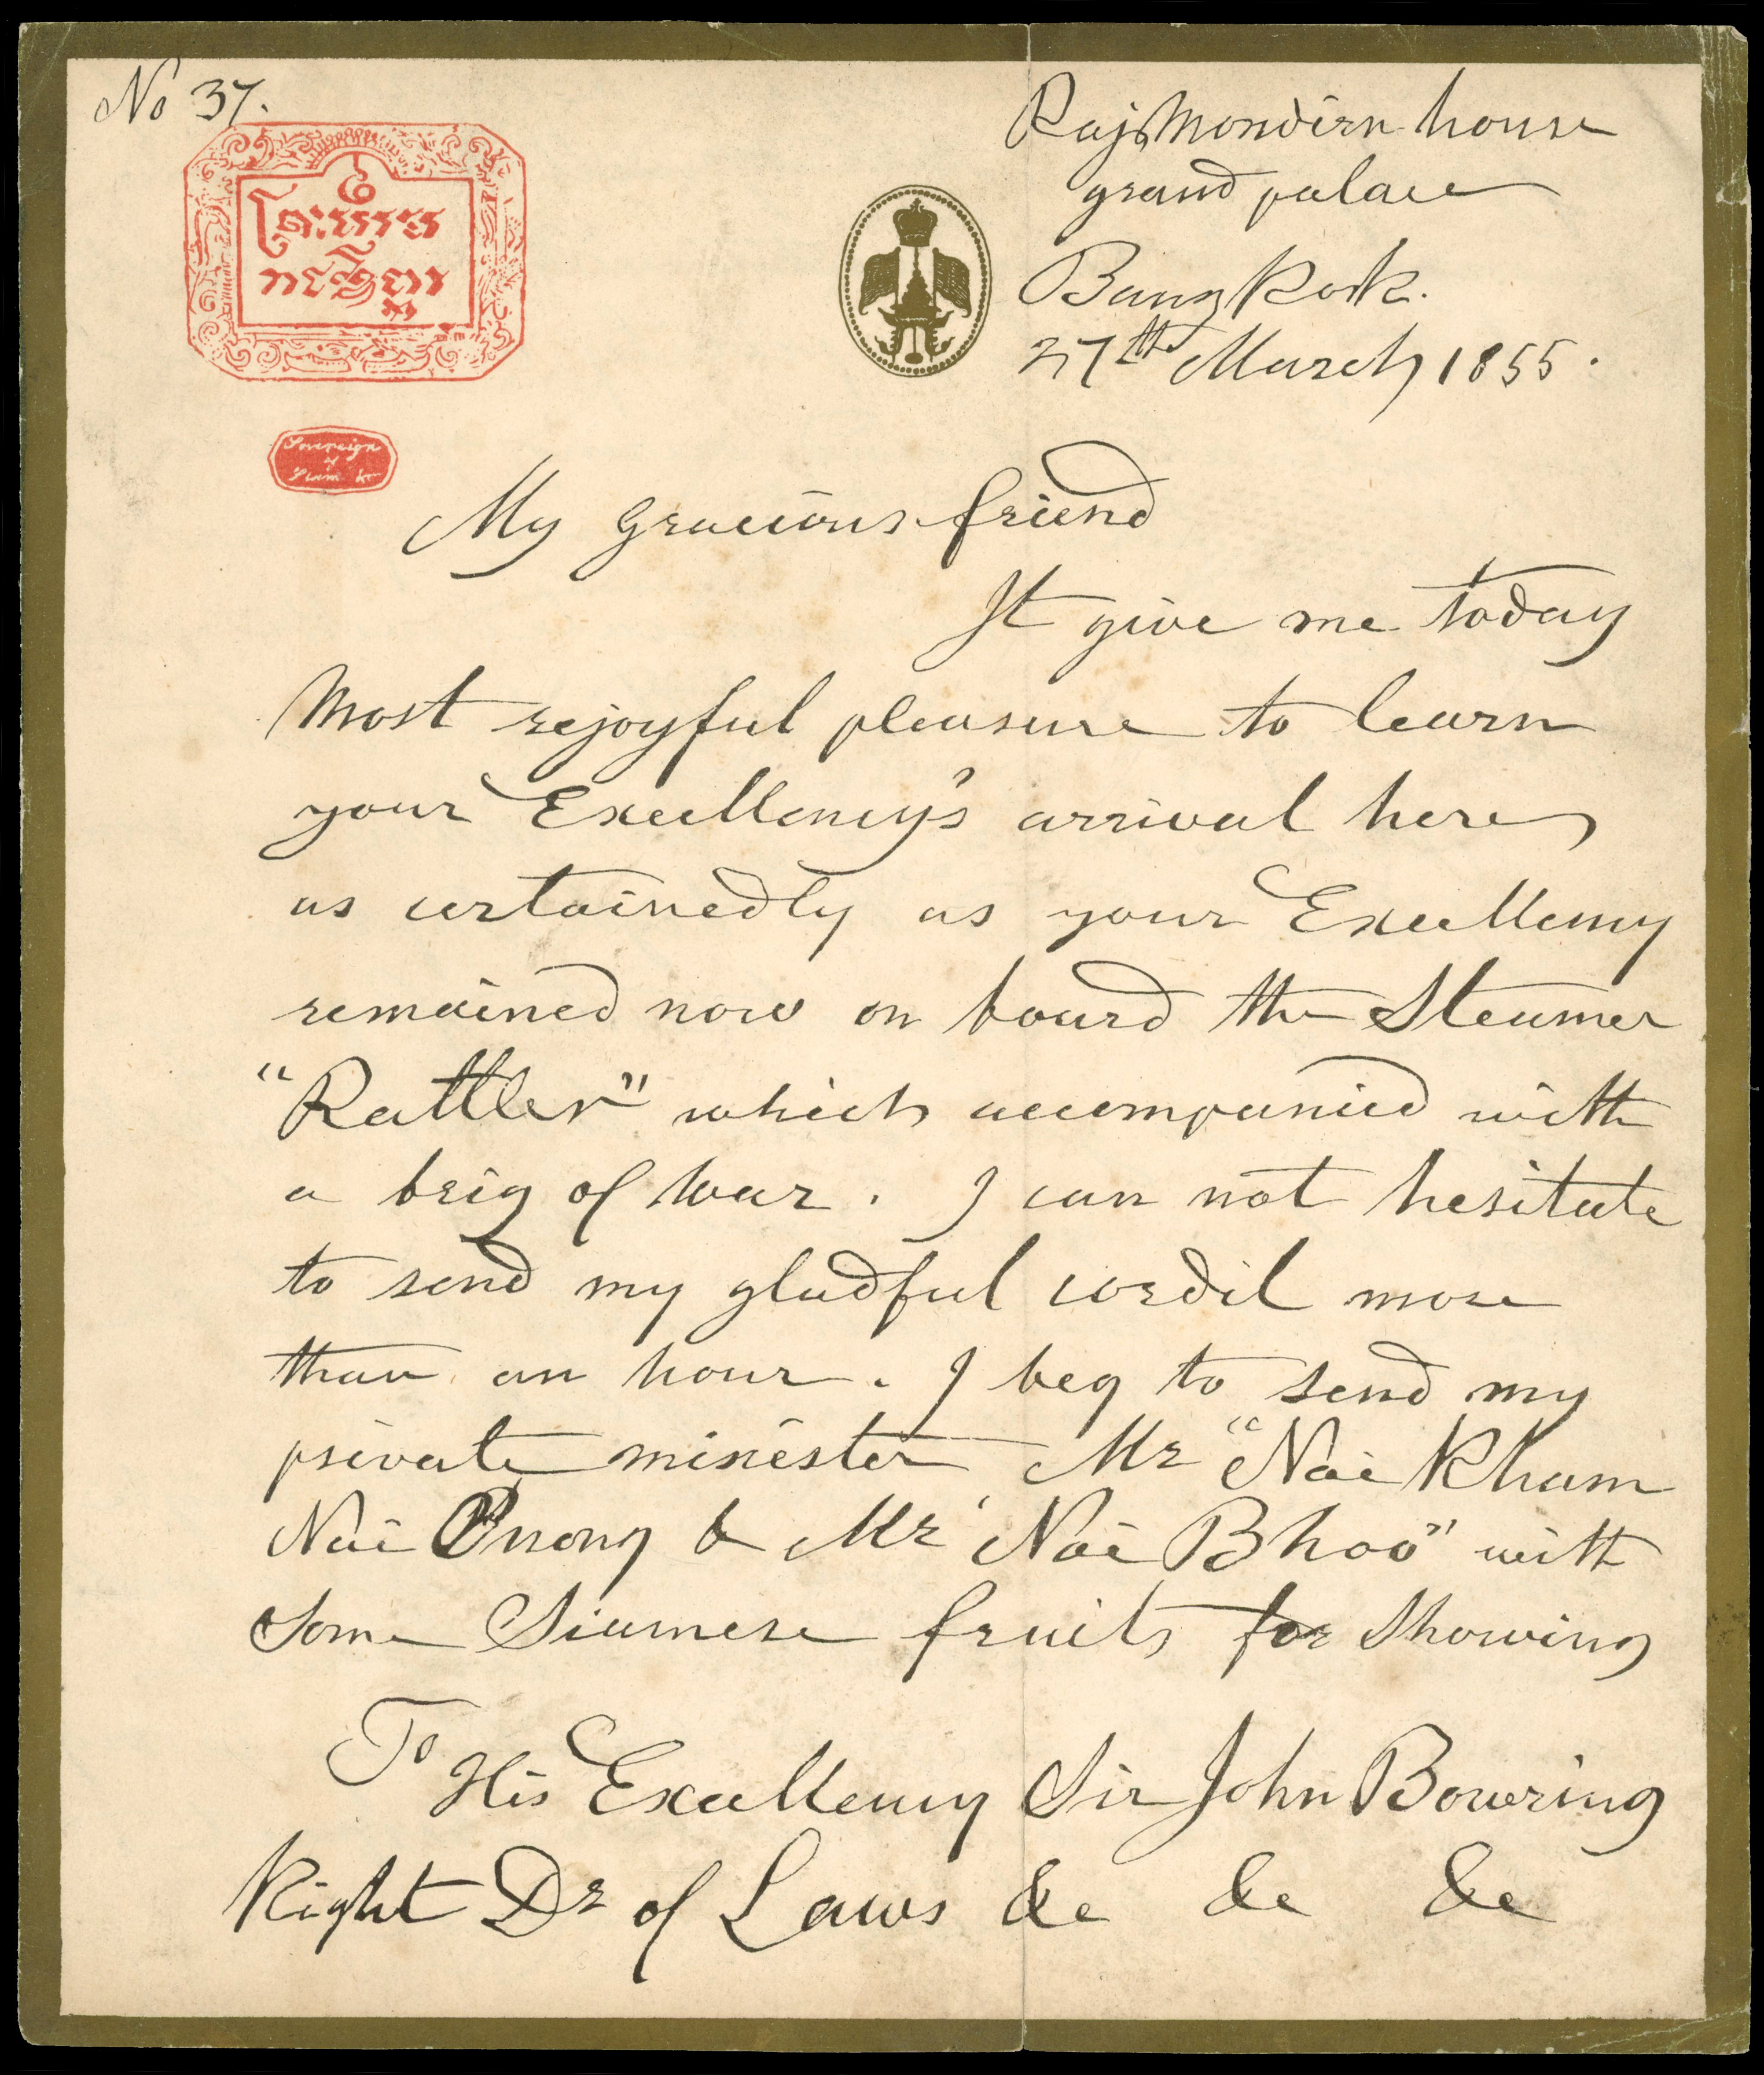 No 37.
Raj Mondirn house
grand palace
Bangkok.
27th March 1855.
Sovereign
of
Siam &c
My gracious friend
It give me today
most rejoyful pleasure to learn
your Excellency's arrival here
as certainedly as your Excellency
remained now on board the Steamer
"Rattler" which accompanied with
a brig of war. I can not hesitate
to send my gladful cordil more
than an hour. I beg to send my
private minister Mr "Nai Kham
Nai Pnong & Mr "Nai Bhoo" with
Some Siamese fruits for Showing
To
His Excellency Sir John Bowring
Kight Dr of Laws &c &c &c